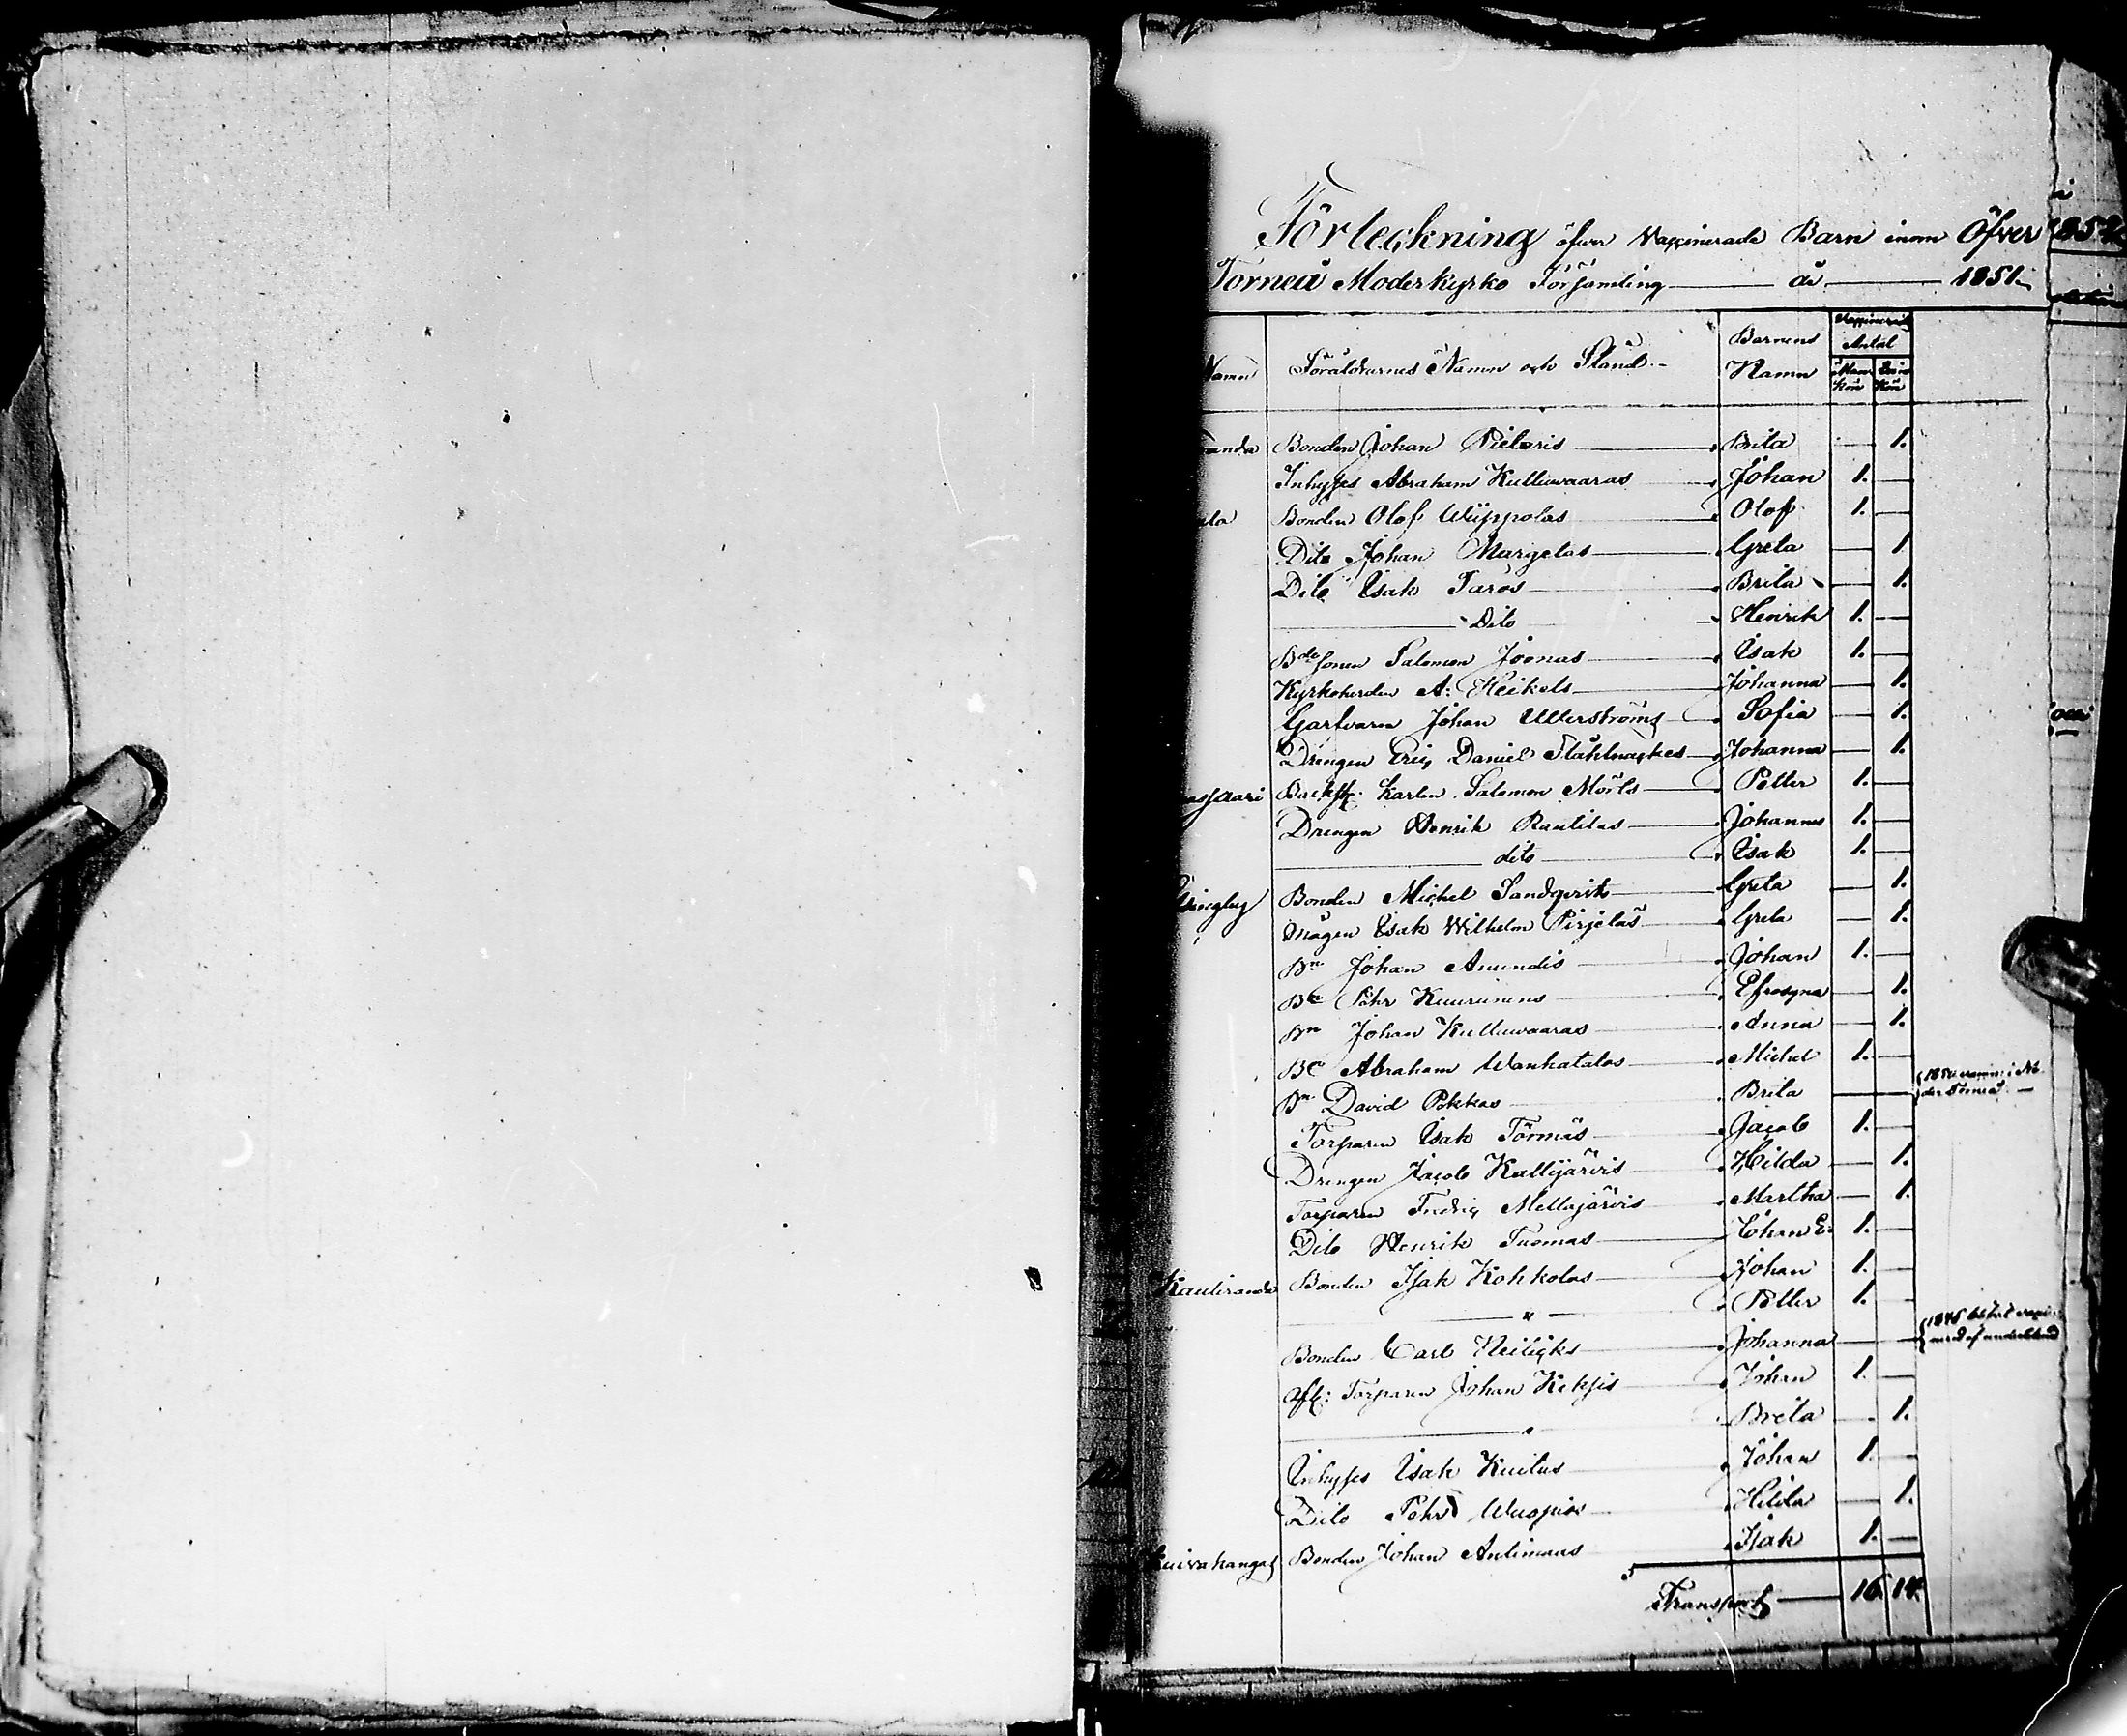 Förteckning öfver Vaccinerade Barn inom Öfver
Torneå Moderkyrko Församling — år — 1851.
Namn Föräldrarnes Namn och Stånd. Barnens Namn Vaccinerades Antal Mann Kön Qvin Kön
randa Bonden Johan Pietaris Brita — 1.
Inhyses Abraham Kulluwaaras Johan 1. —
ala Bonden Olof Wüppolas Olof 1. —
Dito Johan Margetas Greta — 1.
Dito Isak Taros Brita — 1.
Dito Henrik 1. —
Bdesonen Salomon Joonas Isak 1. —
Kyrkoherden A: Heikels Johanna — 1.
Garfvaren Johan Ullerströms Sofia — 1.
Drengen Eric Daniel Ståhlnackes Johanna — 1.
assaari Karlen Salomon Mörts Petter 1. —
Drengen Henrik Rautilas Johannes 1. —
dito Isak 1. —
Bonden Michel Sandqvists Greta — 1.
Mågen Isak Wilhelm Pirjetäs Greta — 1.
Bn Johan Anundis Johan 1. —
Bn Pehr Kuurunens Efrosyna — 1.
Bn Johan Kulluwaaras Anna — 1.
Bn Abraham Wanhatalos Michel 1. —
Bn David Pokkas Brita — — 1850
Torparen Isak Törmäs Jacob 1. —
Drengen Jacob Kallijärvis Hilda — 1.
Torparen Fredric Mellajärvis Martha — 1.
Dito Henrik Tuomas Johan E. 1. —
Kauliranda Bonden Isak Kohkolas Johan 1. —
— " — Petter 1. —
Bonden Carl Heiligks Johanna — —
Torparen Johan Keksis Johan 1. —
" Brita — 1.
Inhyses Isak Kuitus Johan 1. —
Dito Pehr Wuopios Hilda — 1.
Kuivakangas Bonden Johan Antimaas Isak 1. —
Transport — 16. 14.